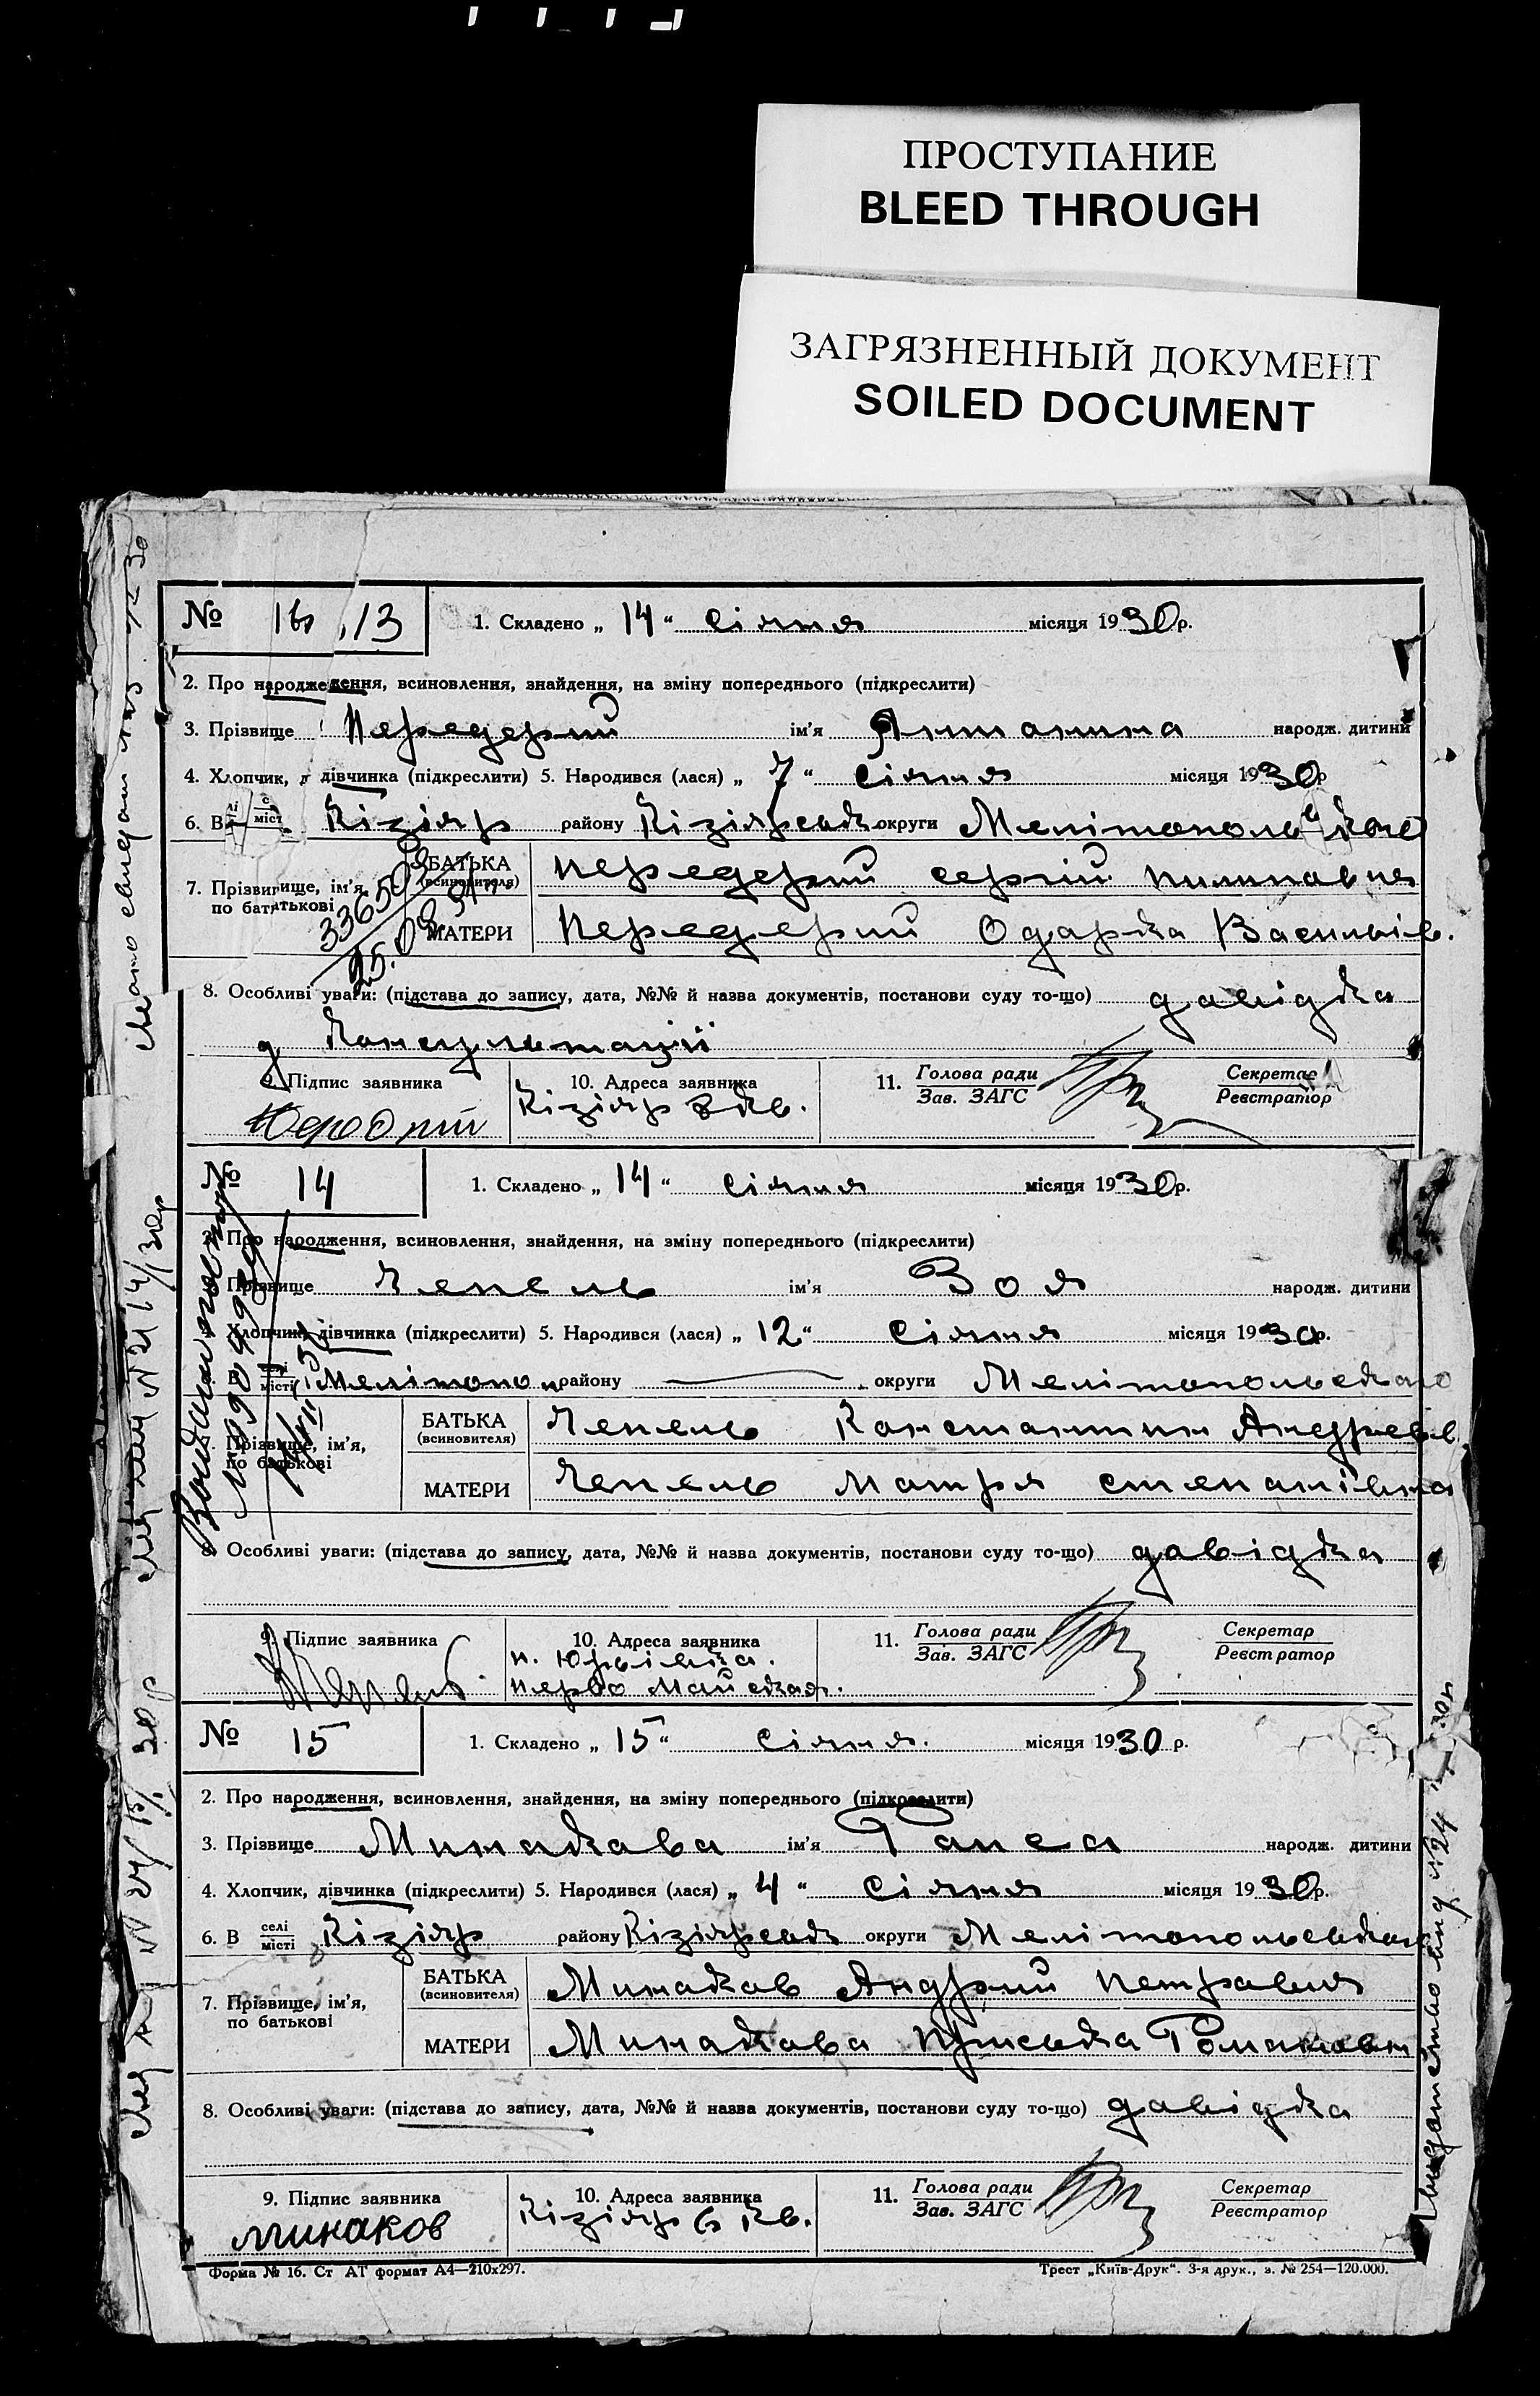 ПРОСТУПАНИЕ
BLEED THROUGH
ЗАГРЯЗНЕННЫЙ ДОКУМЕНТ
SOILED DOCUMENT
№ 13
1. Складено „ 14 “ січня місяця 1930 р.
2. Про народження, всиновлення, знайдення, на зміну попереднього (підкреслити)
3. Прізвище Передерий ім'я Антанина народж. дитини
4. Хлопчик, дівчинка (підкреслити) 5. Народився (лася) „ 7 “ січня місяця 1930 р
6. В Кізіяр району Кізіярськ округи
7. Прізвище, ім'я, по батькові
БАТЬКА (всиновителя) Передерий сергій
МАТЕРИ Передерий Одарка Василів.
33650
8. Особливі уваги: (підстава до запису, дата, №№ й назва документів, постанови суду то-що) давідка
консультації
9. Підпис заявника
10. Адреса заявника
Кізіяр кв.
11. Голова ради
Зав. ЗАГС
Секретар
Реєстратор
№ 14
1. Складено „ 14 “ січня місяця 1930 р.
2. Про народження, всиновлення, знайдення, на зміну попереднього (підкреслити)
Прізвище Чепель ім'я Зоя народж. дитини
Хлопчик, дівчинка (підкреслити) 5. Народився (лася) „ 12 “ січня місяця 1930 р.
В селі місті Мелітопо району округи Мелітопольскаго
Прізвище, ім'я, по батькові
БАТЬКА (всиновителя) Чепель Константин Андреев.
МАТЕРИ Чепель Мотря степанівна
8. Особливі уваги: (підстава до запису, дата, №№ й назва документів, постанови суду то-що) давідка
9. Підпис заявника
10. Адреса заявника
перво майская.
11. Голова ради
Зав. ЗАГС
Секретар
Реєстратор
№ 15
1. Складено „ 15 “ січня. місяця 1930 р.
2. Про народження, всиновлення, знайдення, на зміну попереднього (підкреслити)
3. Прізвище Минакава ім'я Раиса народж. дитини
4. Хлопчик, дівчинка (підкреслити) 5. Народився (лася) „ 4 “ січня місяця 1930 р.
6. В селі місті Кізіяр району Кізіярськ округи
7. Прізвище, ім'я, по батькові
БАТЬКА (всиновителя) Минакав Андрий
МАТЕРИ Минакава
8. Особливі уваги: (підстава до запису, дата, №№ й назва документів, постанови суду то-що) давідка
9. Підпис заявника
минаков
10. Адреса заявника
Кізіяр 6 кв.
11. Голова ради
Зав. ЗАГС
Секретар
Реєстратор
Форма № 16. Ст АТ формат А4—210х297.
Трест „Київ-Друк“. 3-я друк., з. № 254—120.000.